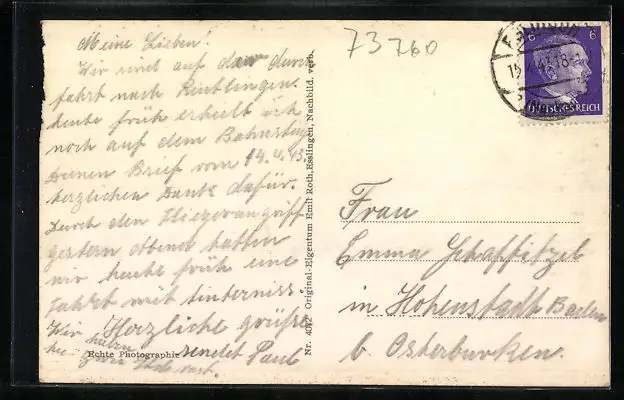 Meine Lieben!
Wir sind auf der durch
fahrt nach Reutlingen.
heute früh erhielt ich
noch auf dem Bahnsteig
Deinen Brief vom 14.4.43.
herzlichen Dank dafür.
Durch den Fliegerangriff
gestern abend hatten
wir heute früh eine
fahrt mit hinterniss
Wir Herzliche grüße
haben
sendet Paul
Echte Photographie
Nr. 4042 Original-Eigentum Emil Roth, Esslingen, Nachbild. verb.
73760
6 6
DEUTSCHES REICH
Frau
Emma Schaffitzel
in Hohenstadt Baden
b Osterburken.